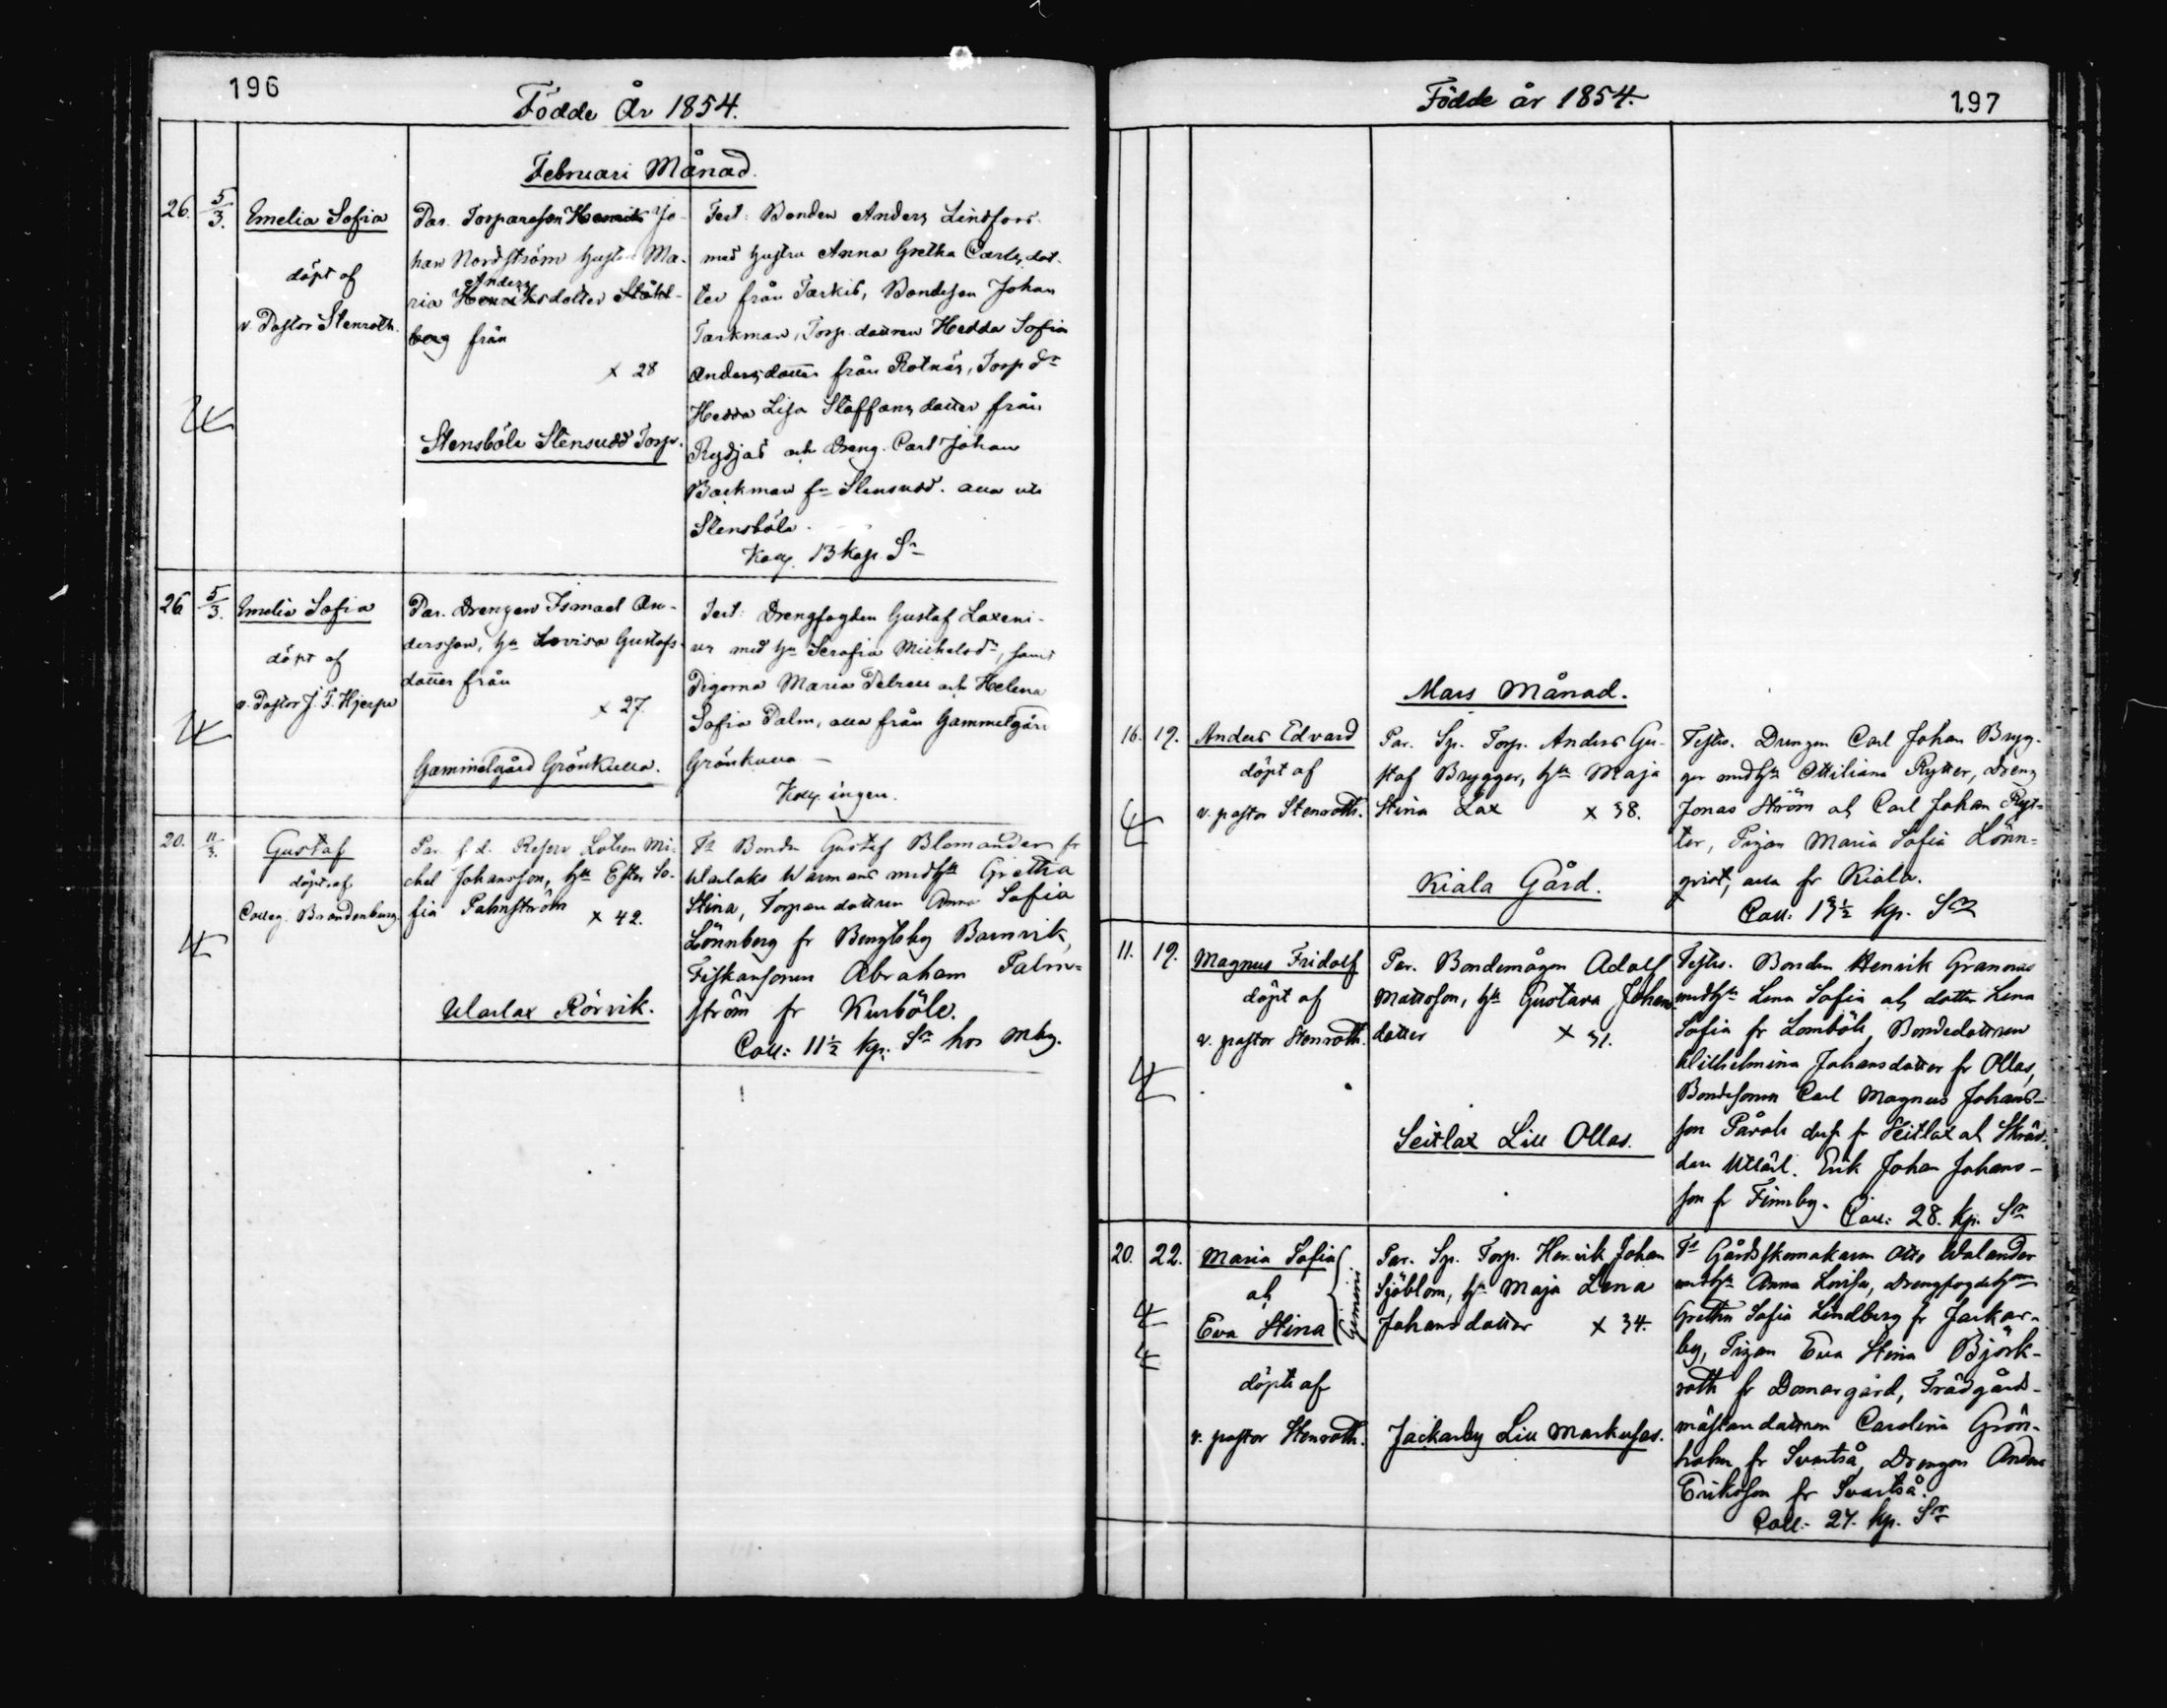 196
Födde År 1854.
Februari Månad.
26.
5/3.
Emelia Sofia
döpt af
v. Pastor Stenroth.
Par. Torparesson Henrik Jo-
han Nordström hustru Ma-
Anders
ria Henriksdotter Ståhl-
berg från
x 28
Stensböle Stensudd Torp.
Test: Bonden Anders Lindfors
med hustru Anna Gretha Carlsdot-
ter från Tarkis, Bondeson Johan
Tarkman, Torp. dottren Hedda Sofia
Andersdotter från Rotnäs, Torp dr
Hedda Lisa Staffansdotter från
och Dreng. Carl Johan
Backman fr Stensudd. alla uti
Stensböle.
13 kop. Sr
26
5/3.
Emelia Sofia
döpt af
v. Pastor J. F. Hjerpe
Par. Drengen Ismael An-
dersson, hu Lovisa Gustafs-
dotter från
x 27.
Gammelgård Grönkulla.
Test: Drengfogden Gustaf Laxeni-
us med hu Serafia Michelsdr, samt
Pigorna Maria Petrell och Helena
Sofia Palm, alla från Gammelgård
Grönkulla —
ingen.
20.
11/3.
Gustaf
döpt af
Colleg. Brandenburg.
Par. f. d. Reserv Lotsen Mi-
chel Johansson, hu Ester So-
fia Palmström x 42.
Warlax Rörvik.
Ts Bonden Gustaf Blomander fr
Warlaks Wärmans med hu Gretha
Stina, Torpare dottren Anna Sofia
Lönnberg fr Bengtsby Barnvik,
Fiskaresonen Abraham Palm-
ström fr Kurböle.
Coll: 11½ kp. Sr hos mbg.
Födde år 1854.
197
Mars Månad.
16.
19.
Anders Edvard
döpt af
v. pastor Stenroth.
Par. Sp. Torp. Anders Gu-
staf Brygger, hu Maja
Stina Lax x 38.
Kiala Gård.
Testes. Drengen Carl Johan Bryg-
ger med hu Ottiliana Rytter, Dreng
Jonas Ström och Carl Johan Ryt-
ter, Pigan Maria Sofia Lönn-
qvist, alla fr Kiala.
Coll: 13½ kp. Sr
11.
19.
Magnus Fridolf
döpt af
v. pastor Stenroth.
Par. Bondemågen Adolf
Mattsson, hu Gustava Johans
dotter x 31.
Seitlax Lill Ollas.
Testes. Bonden Henrik Granroos
med hu Lena Sofia och dotter Lena
Sofia fr Lomböle, Bondedottren
Wilhelmina Johansdotter fr Ollas,
Bondesonen Carl Magnus Johans-
son fr Seitlax och Skräd-
dare Erik Johan Johans-
son fr Finnby. Coll: 28. kp. Sr
20.
22.
Maria Sofia
och
Eva Stina
Gemini.
döpte af
v. pastor Stenroth.
Par. Sp. Torp. Henrik Johan
Sjöblom, hu Maja Lena
Johansdotter x 34.
Jackarby Lill Markusas.
Ts Gårdsskomakaren Otto Walander
med hu Anna Lovisa,
Gretha Sofia Lindberg fr Jackar-
by, Pigan Eva Stina Björk-
roth fr Domargård, Trädgårds-
mästaredottren Carolina Grön-
holm fr Svartså, Drengen Anders
Eriksson fr Svartså.
Coll: 27. kp. Sr